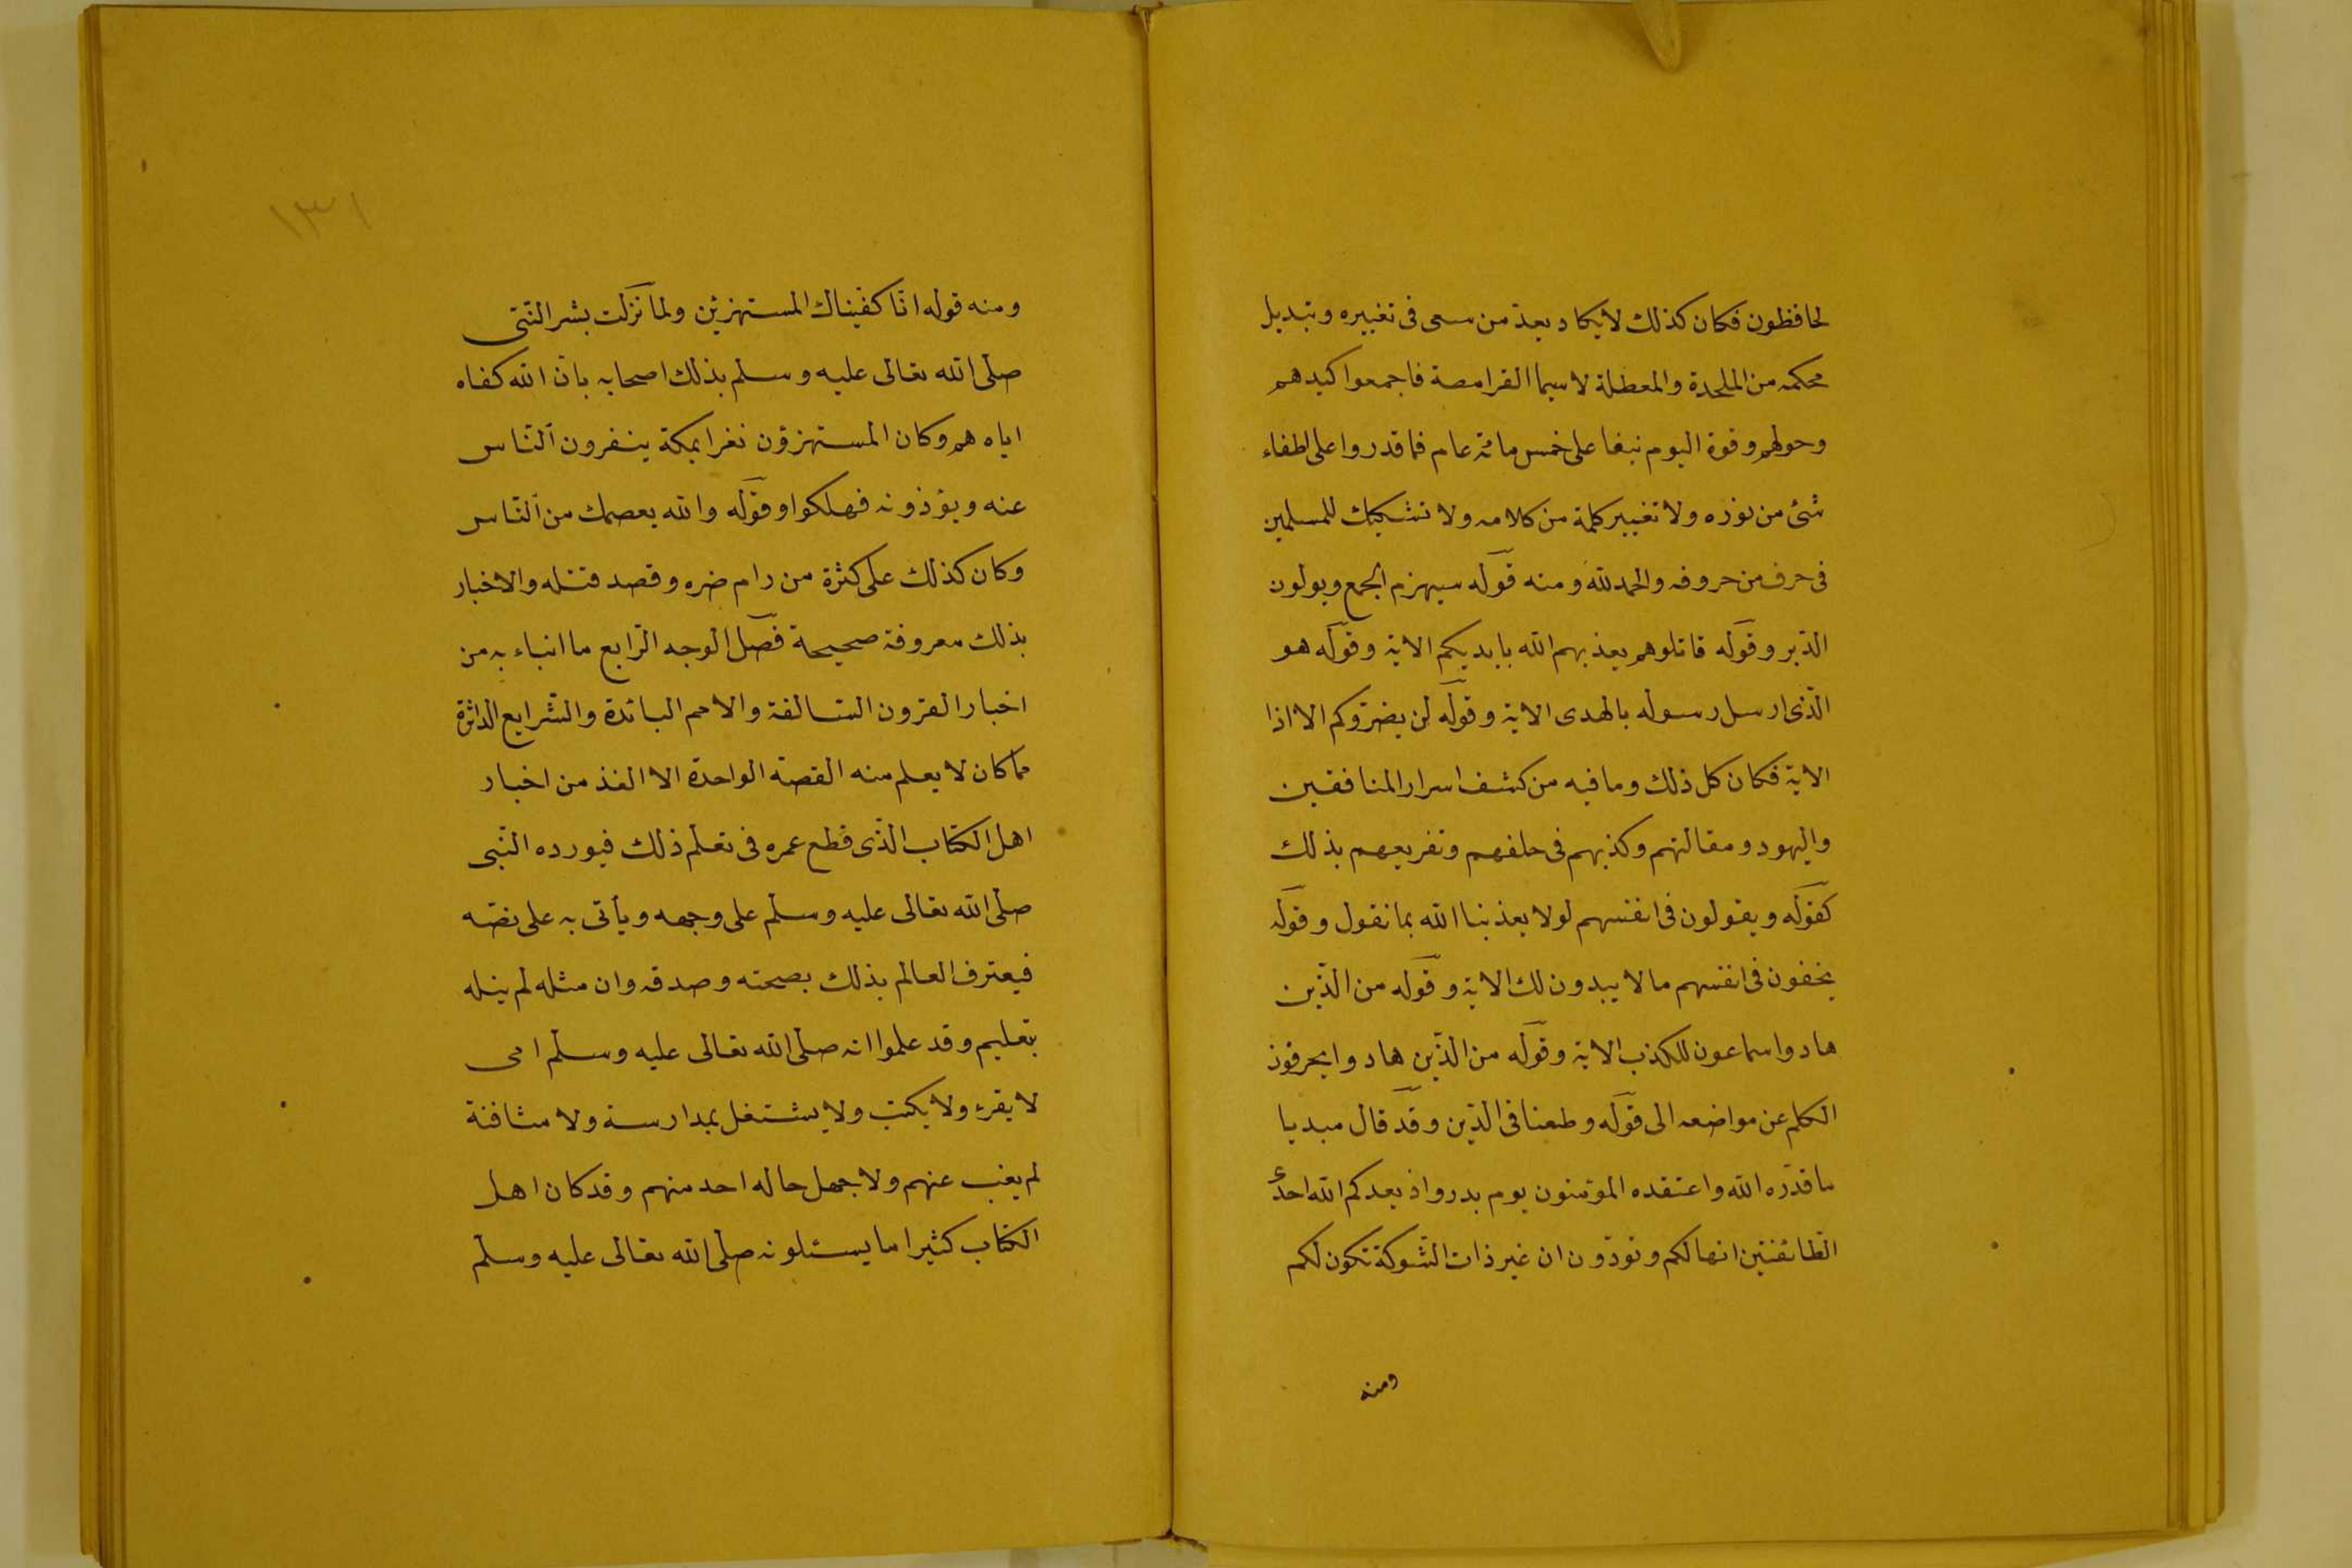 لحافظون فكان كذلك لا يكاد يعدّ من سعى فى تغييره وتبديل
محكمه من الملحدة والمعطلة لا سيما القرامصة فاجمعوا كيدهم
وحولهم وقوة اليوم نيفا على خمس مائة عام فما قدروا على اطفاء
شئ من نوره ولا تغيير كلمة من كلامه ولا تشكيك للمسلمين
فى حرف من حروفه والحمد لله ومنه قوله سيهزم الجمع ويولون
الدّبر وقوله قاتلوهم يعذبهم الله بايديكم الاية وقوله هو
الّذى ارسل رسوله بالهدى الاية وقوله لن يضرّوكم الا اذا
الاية فكان كل ذلك وما فيه من كشف اسرار المنافقين
واليهود ومقالتهم وكذبهم فى حلفهم وتقريعهم بذلك
كقوله ويقولون فى انفسهم لولا يعذبنا الله بما نقول وقوله
يخفون فى انفسهم ما لا يبدون لك الاية وقوله من الّذين
هادوا سماعون للكذب الاية وقوله من الّذين هادوا يحرفون
الكلم عن مواضعه الى قوله وطعنا فى الدّين وقد قال مبديا
ما قدّره الله واعتقده المؤمنون يوم بدر واذ يعدكم الله احدى
الطّائفتين انها لكم وتودّون ان غير ذات الشّوكة تكون لكم
ومنه
١٣١
ومنه قوله انّا كفيناك المستهزئين ولما نزلت بشر النّبى
صلى الله تعالى عليه وسلم بذلك اصحابه بان الله كفاه
اياهم وكان المستهزؤن نفرا بمكة ينفرون النّاس
عنه ويؤذونه فهلكوا وقوله والله يعصمك من النّاس
وكان كذلك على كثرة من رام ضره وقصد قتله والاخبار
بذلك معروفة صحيحة فصل الوجه الرّابع ما انباء به من
اخبار القرون السّالفة والامم البائدة والشّرايع الداثرة
مما كان لا يعلم منه القصة الواحدة الا الفذ من اخبار
اهل الكتاب الّذى قطع عمره فى تعلّم ذلك فيورده النّبى
صلى الله تعالى عليه وسلّم على وجهه ويأتى به على نصّه
فيعترف العالم بذلك بصحته وصدقه وان مثله لم ينله
بتعليم وقد علموا انه صلى الله تعالى عليه وسلّم امى
لا يقرء ولا يكتب ولا يشتغل بمدارسة ولا مثافنة
لم يغب عنهم ولا جهل حاله احد منهم وقد كان اهل
الكتاب كثيرا ما يسئلونه صلى الله تعالى عليه وسلّم